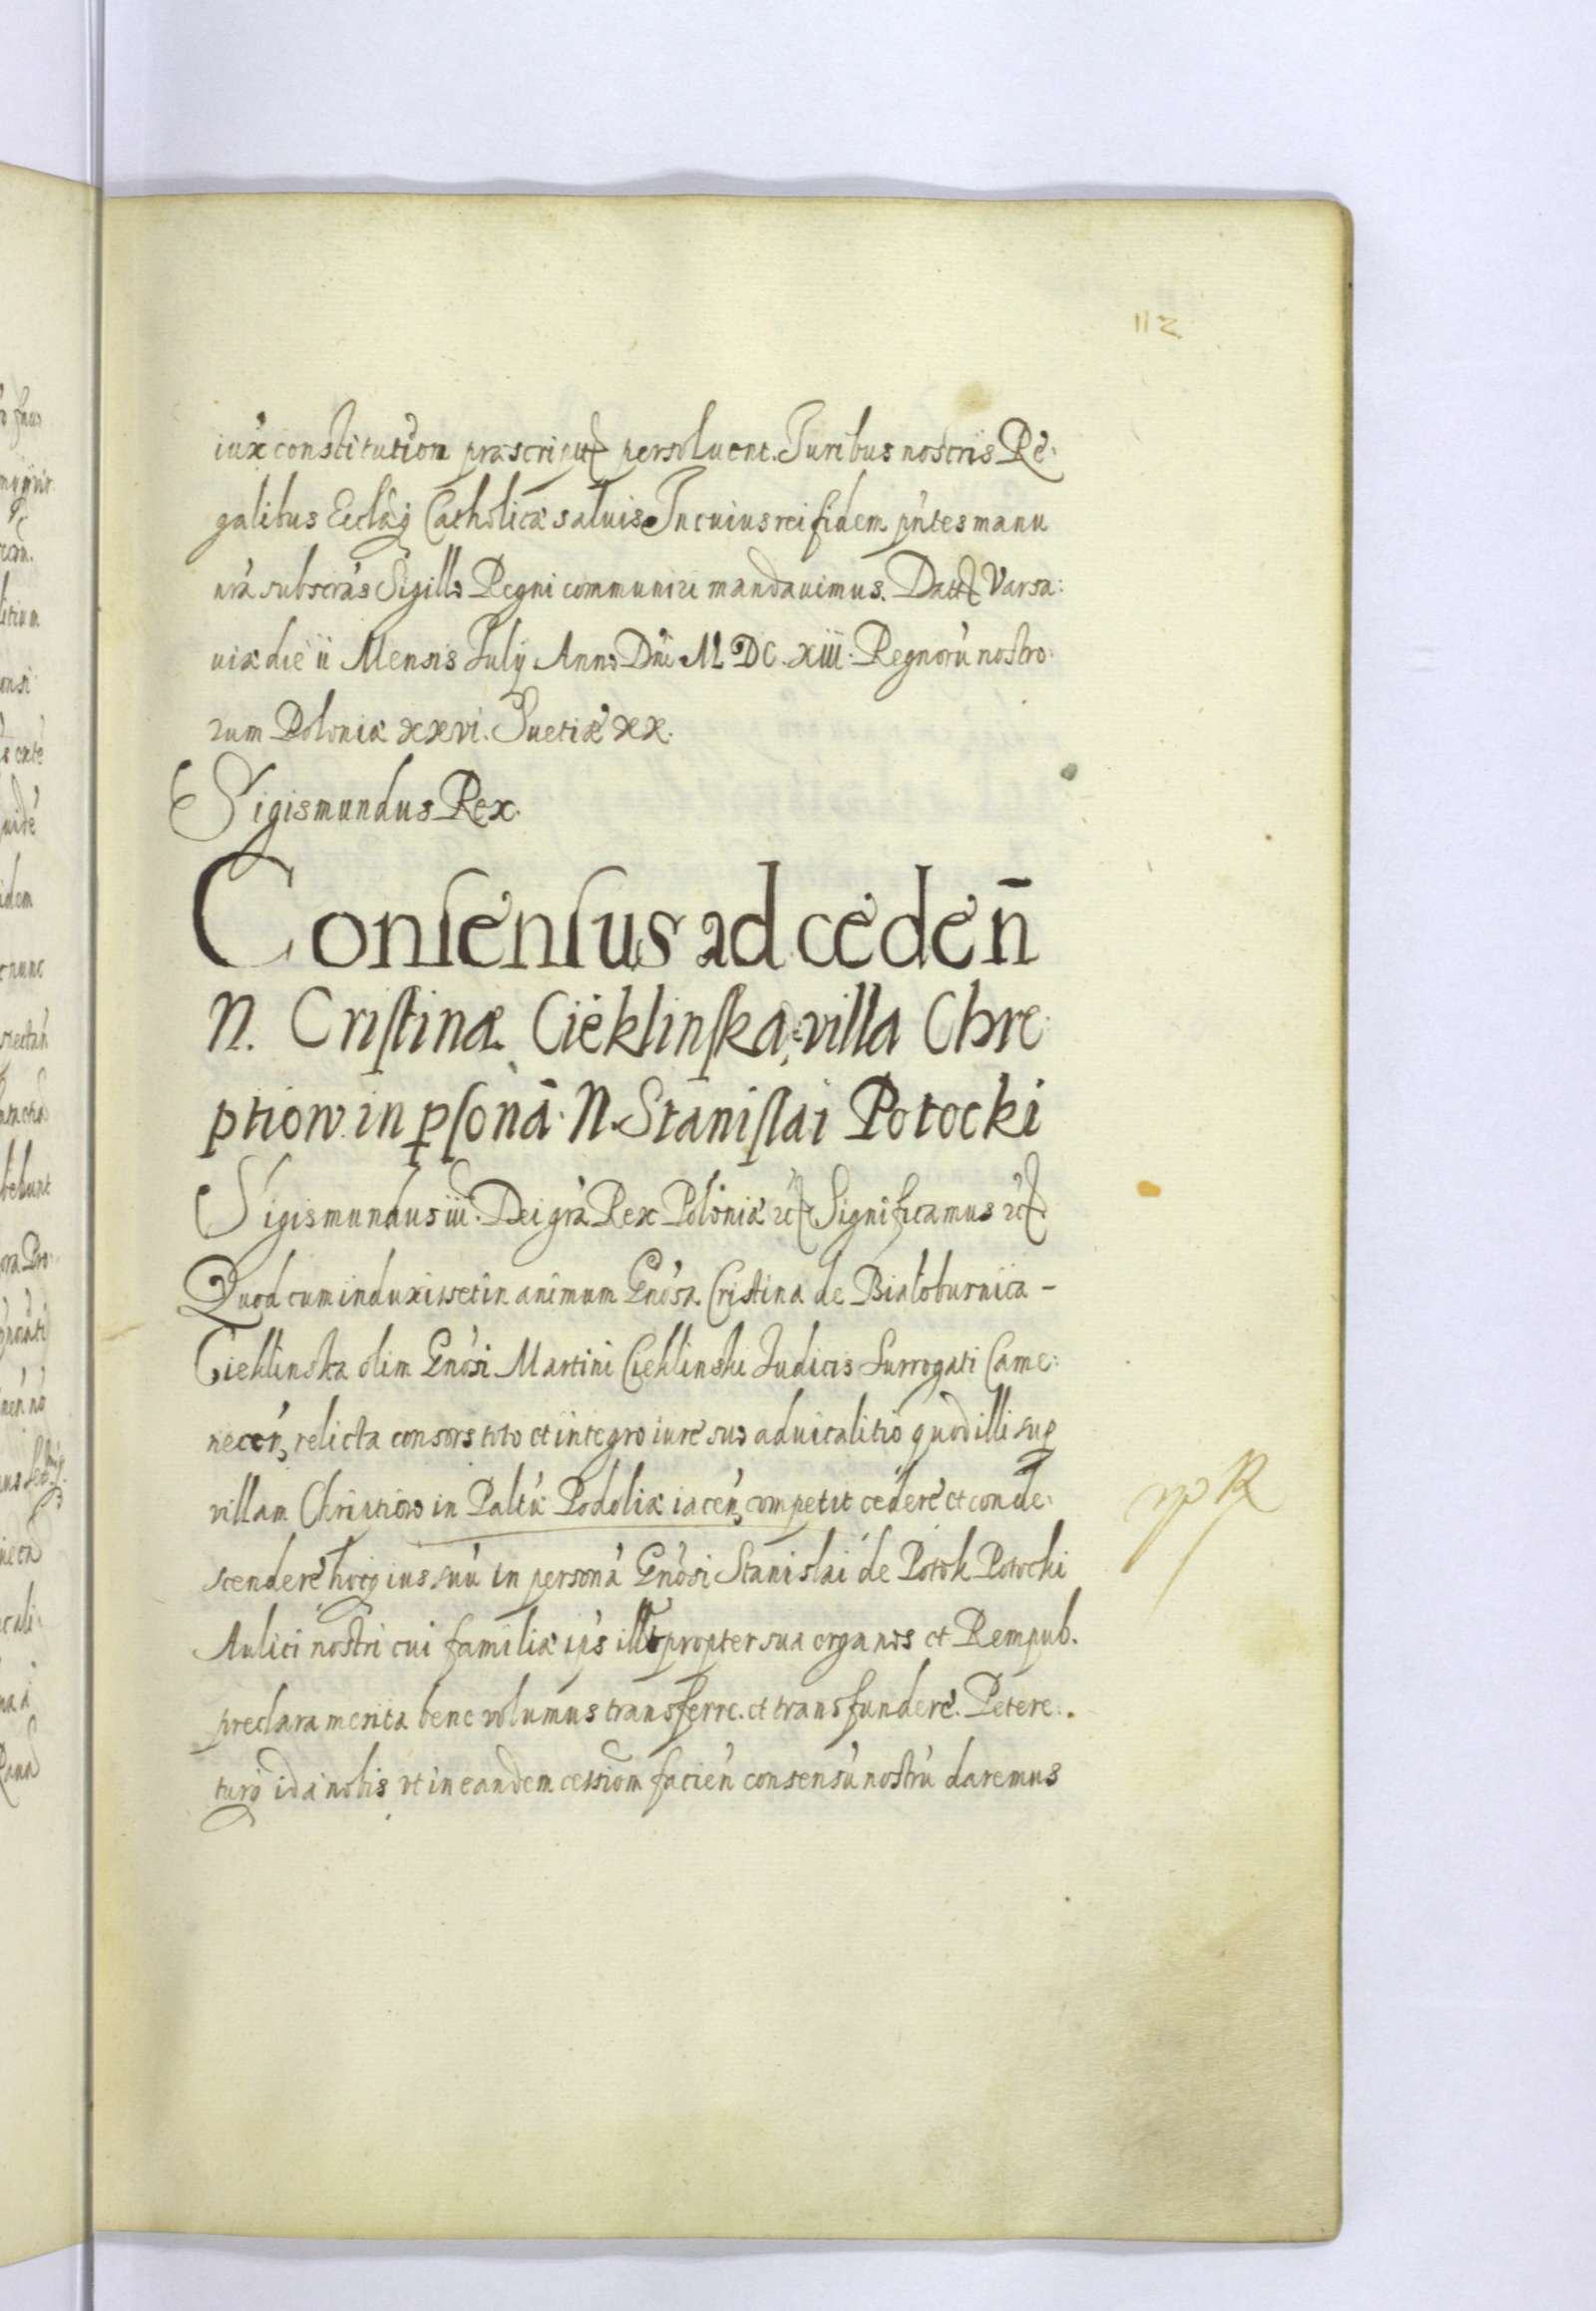 112
iux constitution præscript persoluent. Juribus nostris Re:
galibus Ecclæq Catholicæ saluis. In cuius rei fidem pntes manu
nrà subscràs Sigillo Regni communiri mandauimus. Datt Varsa:
uiæ die ii Mensis July Anno Dni M DC. XIII. Regnorù nostro:
rum Poloniæ xxvi. Suetiæ xx.
Sigismundus Rex.
Conſenſus ad cedeñ
N. Criſtinæ Cieklinſka villa Chre
ptiow in pſonā N. Staniſlai Potocki
Sigismundus iii. Dei grà Rex Poloniæ Significamus
Quod cum induxisset in animum Gnosa Cristina de Białoburnica -
Cieklinska olim Gnosi Martini Cieklinski Judicis Surrogati Came:
necen, relicta consors toto et integro iure suo aduitalitio quod illi sup
villam Chreptiow in Paltu Podoliæ iacen, competit cedere et conde:
scendere hocq ius suù in personà Gnosi Stanislai de Potok Potocki
Aulici nostri cui familiæ ips ill propter sua erga nos et Rempub.
preclara merita bene volumus transferre et transfundere. Petere:
turq id à nobis vt in eandem cessiom facien consensù nostrù daremus